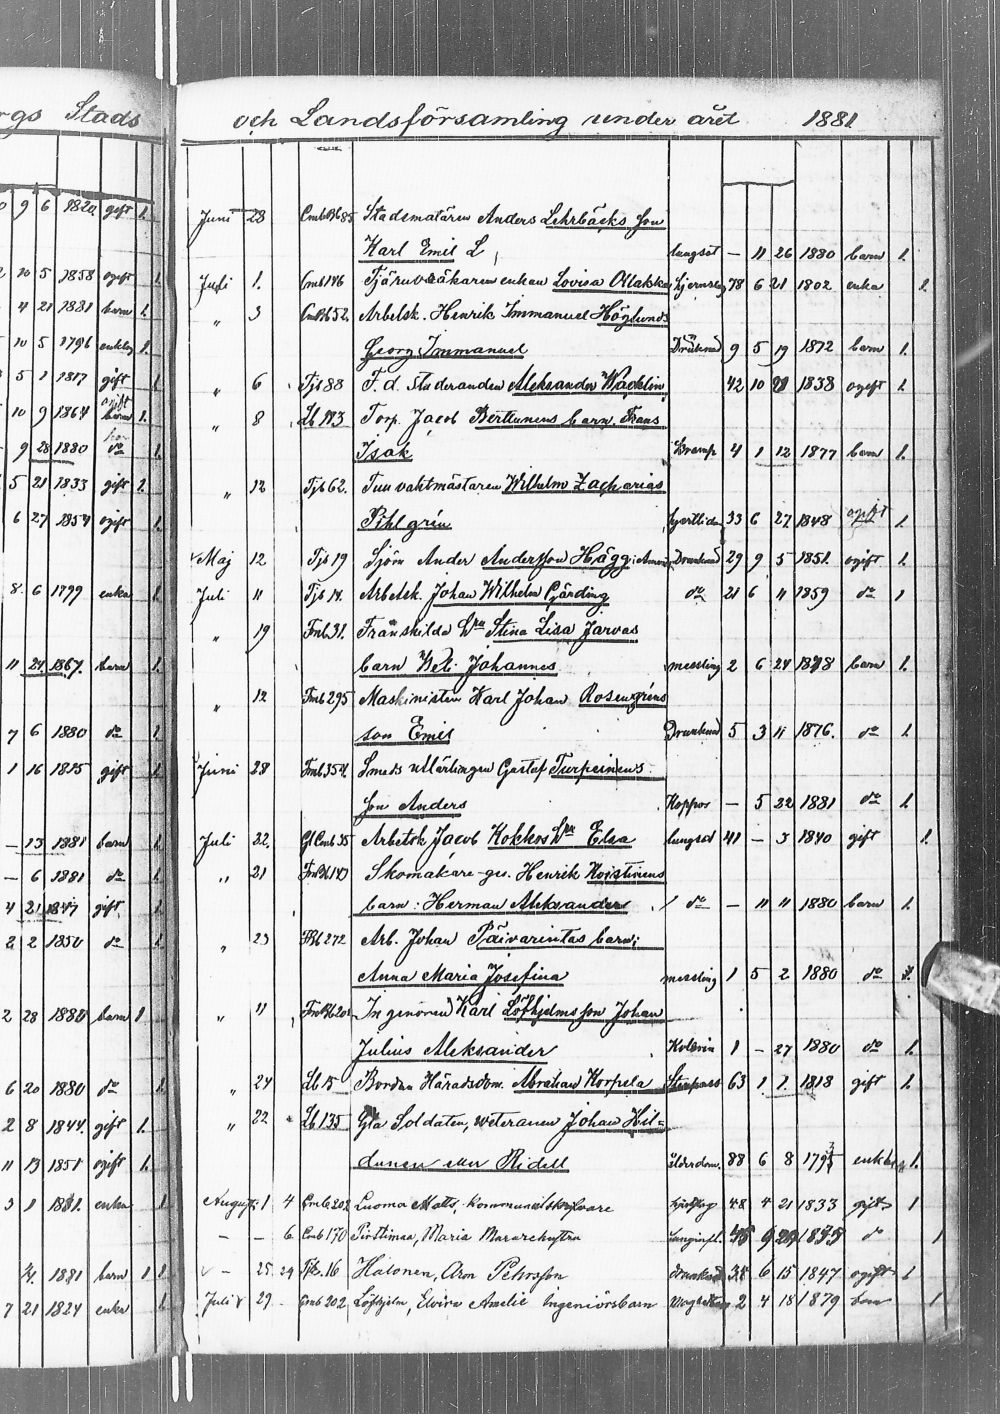 rgs Stads
9 6 1820 gift 1.
10 5 1858 ogift 1.
4 21 1881 barn 1.
10 5 1796 enkling 1.
5 1 1817 gift 1.
10 9 1864 ogift barn 1.
9 28 1880 do 1.
5 21 1833 gift 1.
6 27 1854 ogift 1.
8 6 1799 enka 1.
11 27 1867. barn 1.
7 6 1880 do 1.
1 16 1815 gift 1.
– 13 1881 barn 1.
– 6 1881 do 1.
4 21 1847 gift 1.
2 2 1850 do 1.
2 28 1880 barn 1
6 20 1880 do 1.
2 8 1844. gift 1.
11 13 1851 ogift 1.
3 1 1881. enka 1
1881 barn 1 1
7 21 1824 enka 1
och Landsförsamling under året 1881
Juni 23 Stadsmatären Anders Lehrbäcks son
Karl Emil L, lungsot – 11 26 1880 barn 1.
Juli 1. Cmb 146 enkan Lovisa 78 6 21 1802 enka 1.
„ 3 Arbetsk. Henrik Immanuel Höglunds
Georg Immanuel Drunknad 9 5 19 1872 barn 1.
„ 6 Tjb 88 F. d. studeranden Aleksander Wacklin 42 10 1838 ogift 1.
„ 8 Lb 193 Torp. Jacob barn Frans
Isak Kramp 4 1 12 1877 barn 1.
„ 12 Tjb 62. Tull vaktmästaren Wilhelm Zacharias
Pihlgrén 33 6 27 1848 ogift 1
Maj 12 Tjb 19 Sjöm Ander Andersson Hägg Drunknad 29 9 5 1851. ogift 1.
Juli 11 Tjb 14. Arbetsk. Johan Wilhelm do 21 6 11 1859 do 1
„ 19 Fmb 31. Frånskilda Stina Lisa Jarvas
barn Johannes messling 2 6 24 1878 barn 1.
„ 12 Fmb 295 Maskinisten Karl Johan Rosengréns
son Emil Drunknad 5 3 11 1876. do 1.
Juni 28 Fmb 354. Smeds utlärlingen Gustaf Turpeinens
son Anders Koppor – 5 22 1881 do 1.
Juli 22. Gl Cmb 35 Arbetsk Jacob Kokkos Elsa lungsot 41 – 3 1840 gift 1.
„ 21 Skomakare-ges. Henrik Koistinens
barn: Herman Aleksander do – 11 11 1880 barn 1.
„ 23 272 Arb. Johan Päivarintas barn;
Anna Maria Josefina messling 1 5 2 1880 do 1.
„ 11 Ingeniören Karl Löfhjelms son Johan
Julius Aleksander 1 – 27 1880 do 1.
„ 24 Lb 15 Bonden Häradsdom. Abraham Korpela Stenpass 63 1 1. 1818 gift 1.
„ 22 Lb 135 Gla Soldaten, veteranen Johan Hil=
dunen eller Ridell ålderdom. 88 6 8 enkling 1.
Augusti 1 4 Cmb 202 Luoma Matts, kommunalskrifvare 48 4 21 1833 gift 1
– – 6 Cmb 170 Pirttimaa, Maria 9 do 1
– 25 29 Tjb. 16 Halonen, Aron Petersson drunknad 6 15 1847 ogift 1
Juli 29. Cmb 202 Löfhjelm, Elvira Amelie Ingeniörsbarn 2 4 18 1879 barn 1